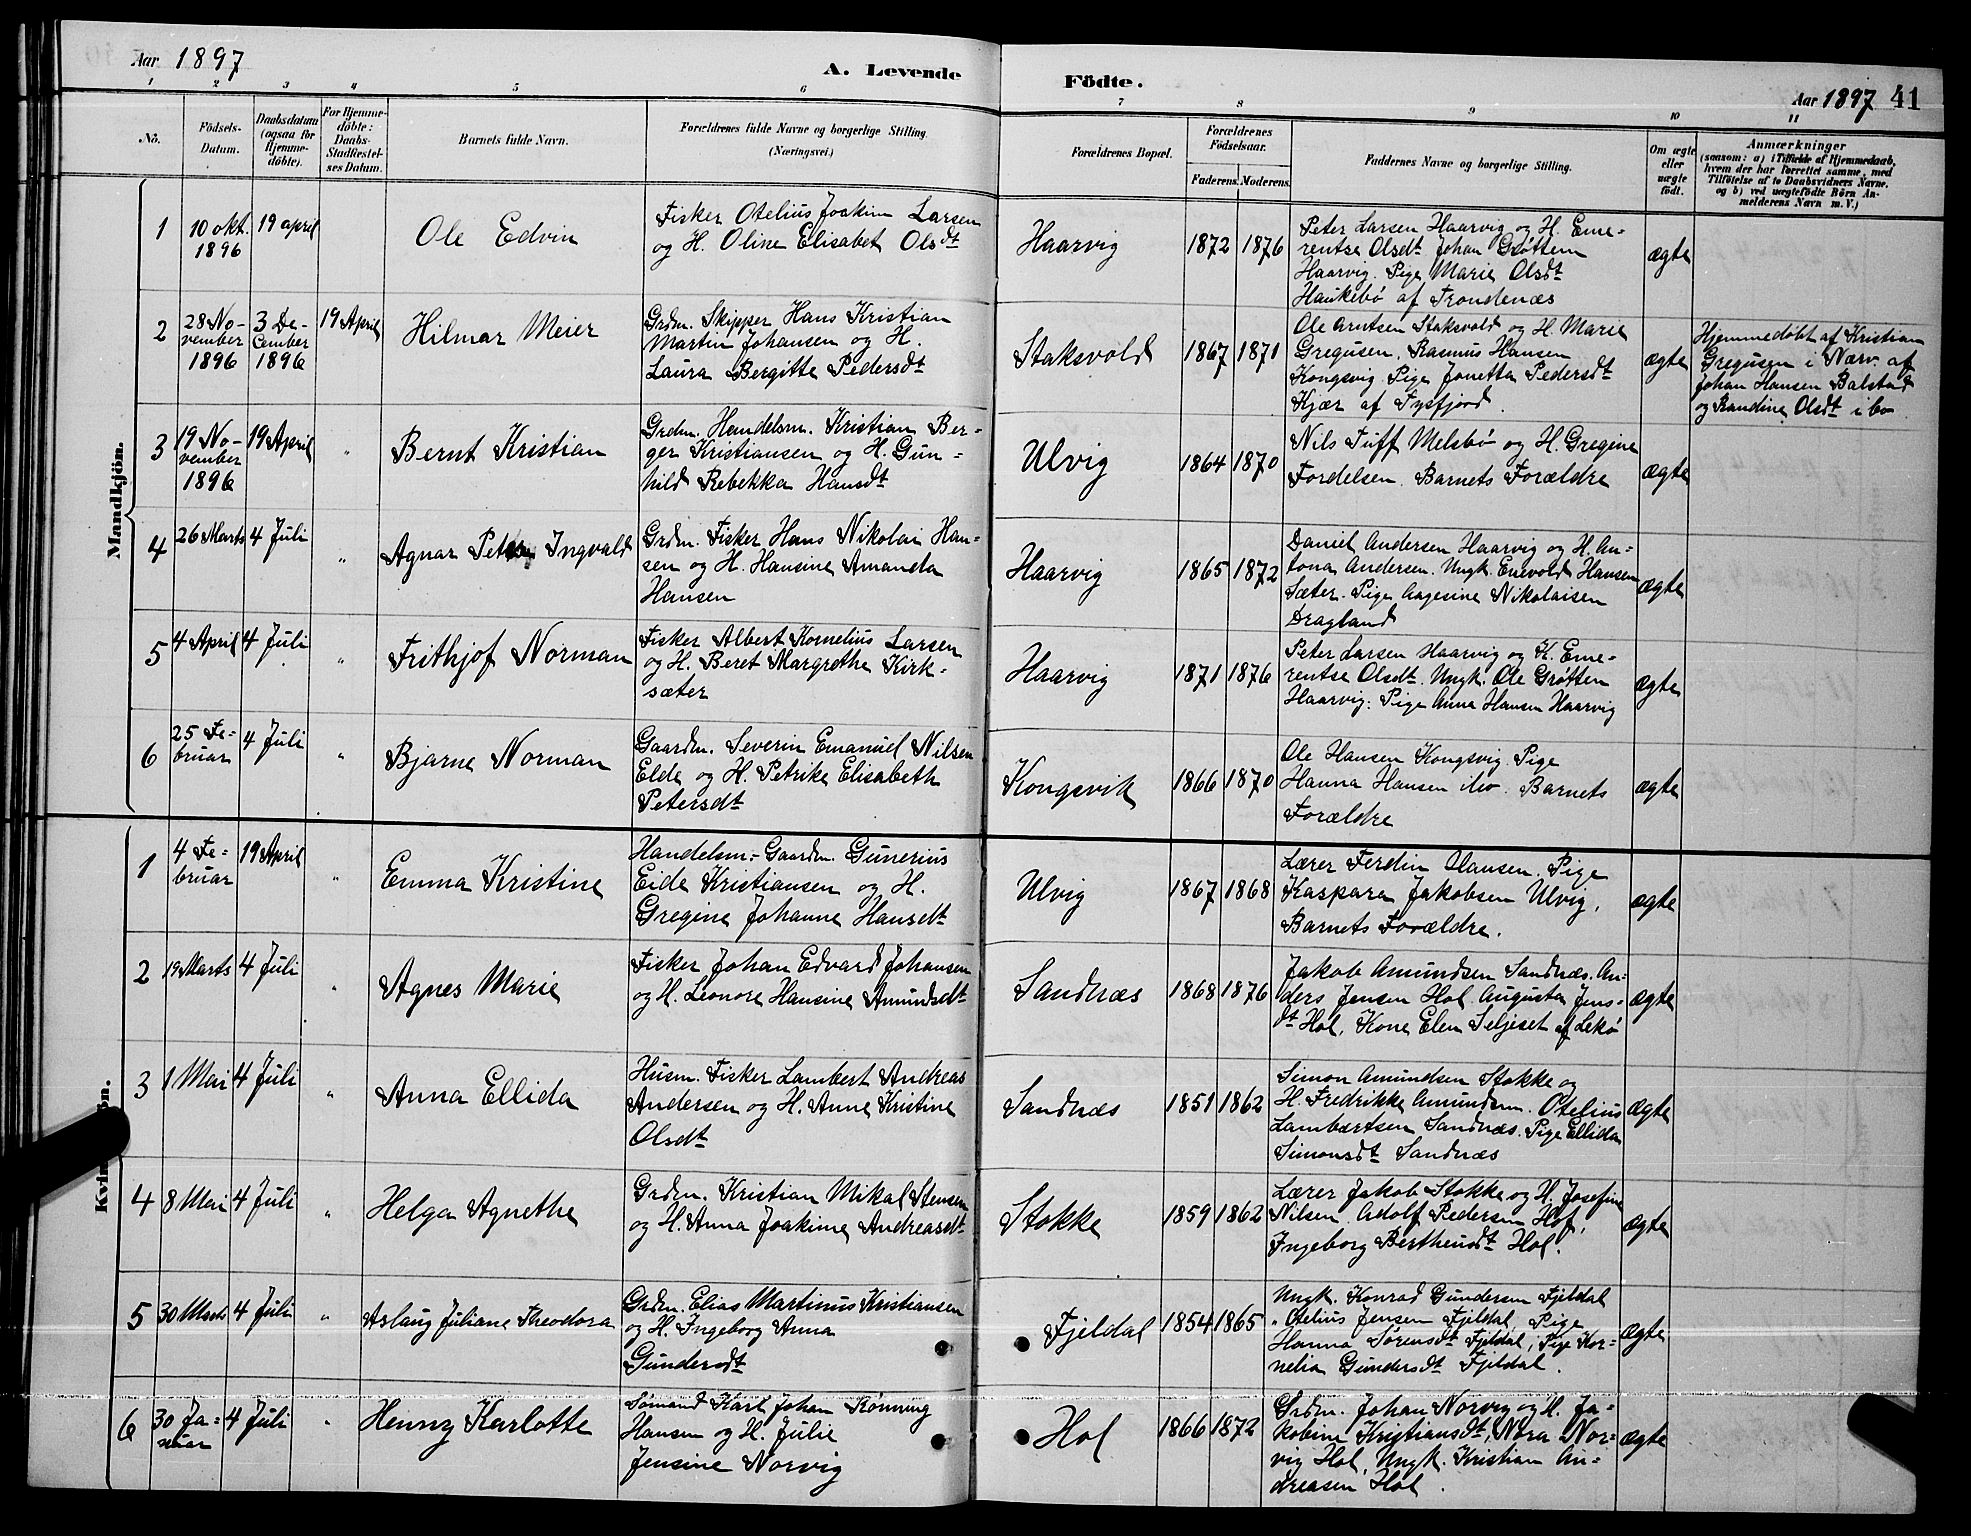 Aar 1897
A. Levende Födte.
Aar 1897 41
1 2 3 4 5 6 7 8 9 10 11
No.
Födsels-Datum.
Daabsdatum (ogsaa for Hjemme-döbte).
For Hjemme-döbte: Daabs-Stadfestel-ses Datum.
Barnets fulde Navn.
Forældrenes fulde Navne og borgerlige Stilling.
(Næringsvei.)
Forældrenes Bopæl.
Forældrenes Födselsaar.
Faderens. Moderens.
Faddernes Navne og borgerlige Stilling.
Om ægte eller uægte födt.
Anmærkninger
(saasom: a) i Tilfælde af Hjemmedaab,
hvem der har forrettet samme, med
Tilföielse af to Daabsvidners Navne.
og b) ved uægtefödte Börn An-
melderens Navn m. V.)
Mandkjön.
1
10 okt.
1896
19 april
Ole Edvin
Fisker Otelius Joakim Larsen
og H. Oline Elisabet Olsdt
Haarvig
1872 1876
Peter Larsen Haarvig og H. Eme-
rentse Olsdt Johan Grøttem
Haarvig. Pige Marie Olsdt
Haukebø af Trondenæs
ægte
2
28 No-
vember
1896
3 De-
cember
1896
19 April
Hilmar Meier
Grdm. Skipper Hans Kristian
Martin Johansen og H.
Laura Bergitte Pedersdt
Staksvold
1867 1871
Ole Arntsen Staksvold og H. Marie
Gregusen. Rasmus Hansen
Kongsvig. Pige Jonetta Pedersdt
Kjær af Tysfjord.
ægte
Hjemmedøbt af Kristian
Gregusen i Nærv. af
Johan Hansen Balstad
og Randine Olsdt ibo
3
19 No-
vember
1896
19 April
"
Bernt Kristian
Grdm. Handelsm. Kristian Ber-
ger Kristiansen og H. Gun-
hild Rebekka Hansdt
Ulvig
1864 1870
Nils Tuff Melsbø og H. Gregine
Fordelsen. Barnets Forældre
ægte
4
26 Marts
4 Juli
"
Agnar Peter Ingvald
Grdm. Fisker Hans Nikolai Han-
sen og H. Hansine Amanda
Hansen
Haarvig
1865 1872
Daniel Andersen Haarvig og H. An-
tona Andersen. Ungk. Enevold Hansen
Sæter. Pige Aagesine Nikolaisen
Dragland
ægte
5
4 April
4 Juli
"
Frithjof Norman
Fisker Albert Kornelius Larsen
og H. Beret Margrethe Kirk-
sæter
Haarvig
1871 1876
Peter Larsen Haarvig og K. Eme-
rentse Olsdt. Ungk. Ole Grøtten
Haarvig. Pige Anna Hansen Haarvig
ægte
6
25 Fe-
bruar
4 Juli
"
Bjarne Norman
Gaardm. Severin Emanuel Nilsen
Elde og H. Petrike Elisabeth
Petersdt
Kongsvik
1866 1870
Ole Hansen Kongsvig. Pige
Hanna Hansen ibo. Barnets
Forældre
ægte
1
4 Fe-
bruar
19 April
"
Emma Kristine
Handelsm.- Gaardm. Gunerius
Eide Kristiansen og H.
Gregine Johanne Hansdt
Ulvig
1867 1868
Lærer Ferdin Olausen. Pige
Kaspara Jakobsen Ulvig.
Barnets Forældre.
ægte
2
19 Marts
4 Juli
"
Agnes Marie
Fisker Johan Edvard Johansen
og H. Leonore Hansine Amundsdt
Sandnæs
1868 1876
Jakob Amundsen Sandnæs. An-
ders Jensen Hol. Augusta Jens-
dt Hol. Kone Elen Seljeset af Lekø
ægte
3
1 Mai
4 Juli
"
Anna Ellida
Husm. Fisker Lambert Andreas
Andersen og H. Anne Kristine
Olsdt
Sandnæs
1851 1862
Simon Amundsen Stokke og
H. Fredrikke Amundsen. Otelius
Lambertsen Sandnæs. Pige Ellida
Simonsdt Sandnæs
ægte
4
8 Mai
4 Juli
"
Helga Agnethe
Grdm. Kristian Mikal Stensen
og H. Anna Joakime Andreasdt
Stokke
1859 1862
Lærer Jakob Stokke og H. Josefine
Nilsen. Adolf Pedersen Hol.
Ingeborg Bertheusdt Hol.
ægte
5
30 Marts
4 Juli
"
Aslaug Juliane Theodora
Grdm. Elias Martinus Kristiansen
og H. Ingeborg Anna
Gundersdt
Fjeldal
1854 1865
Ungk. Konrad Gundersen Fjeldal
" Otelius Jensen Fjeldal, Pige
Hanna Sørensdt Fjeldal, Pige Kor-
nelia Gundersdt Fjeldal.
ægte
6
30 Ja-
nuar
4 Juli
"
Henny Karlotte
Sømand Karl Johan Rønning
Hansen og H. Julie
Jensine Norvig
Hol
1866 1872
Grdm. Johan Norvig og H. Ja-
kobine Kristiansdt, Nora Nor-
vig Hol, Ungk. Kristian An-
dreasen Hol.
ægte